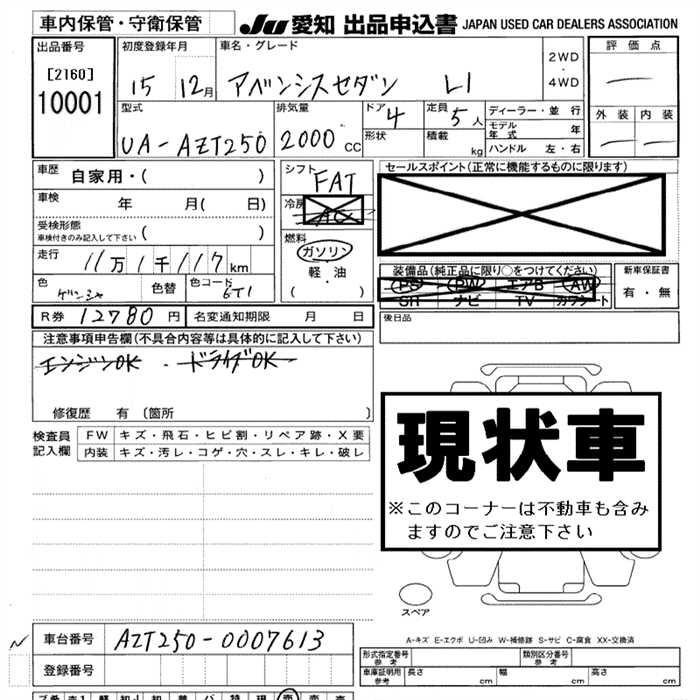 車内保管・守衛保管 JU 愛知 出品申込書 JAPAN USED CAR DEALERS ASSOCIATION
出品番号 初度登録年月 車名・グレード 評価点
[2160] 15 12月 アベンシスセダン LI 2WD・4WD
10001
型式 排気量 ドア 4 定員 5人 ディーラー・並行 外装 内装
UA-AZT250 2000CC 形状 積載 kg モデル年式 年
ハンドル 左・右
車歴 自家用・( ) シフト FAT セールスポイント(正常に機能するものに限ります)
車検 年 月( 日) 冷房 AC
受検形態 ( )
車検付きのみ記入して下さい
燃料
走行 11万1千117km ガソリン
軽・油
( ・ )
装備品(純正品に限り○をつけてください) 新車保証書
色 色替 色コード 6T1 PS PW エアB AW 有・無
SR ナビ TV カワシート
R券 12780円 名変通知期限 月 日 後日品
注意事項申告欄(不具合内容等は具体的に記入して下さい)
エンジンOK ・ドライブOK
修復歴 有 (箇所 )
検査員記入欄 FW キズ・飛石・ヒビ割・リペア跡・X要
内装 キズ・汚レ・コゲ・穴・スレ・キレ・破レ
現状車
※このコーナーは不動車も含み
ますのでご注意下さい
スペア
車台番号 AZT250-0007613
A-キズ E-エクボ U-凹み W-補修跡 S-サビ C-腐食 XX-交換済
登録番号
形式指定番号 参考 類別区分番号 参考
車庫証明用 参考 長さ cm 幅 cm 高さ cm